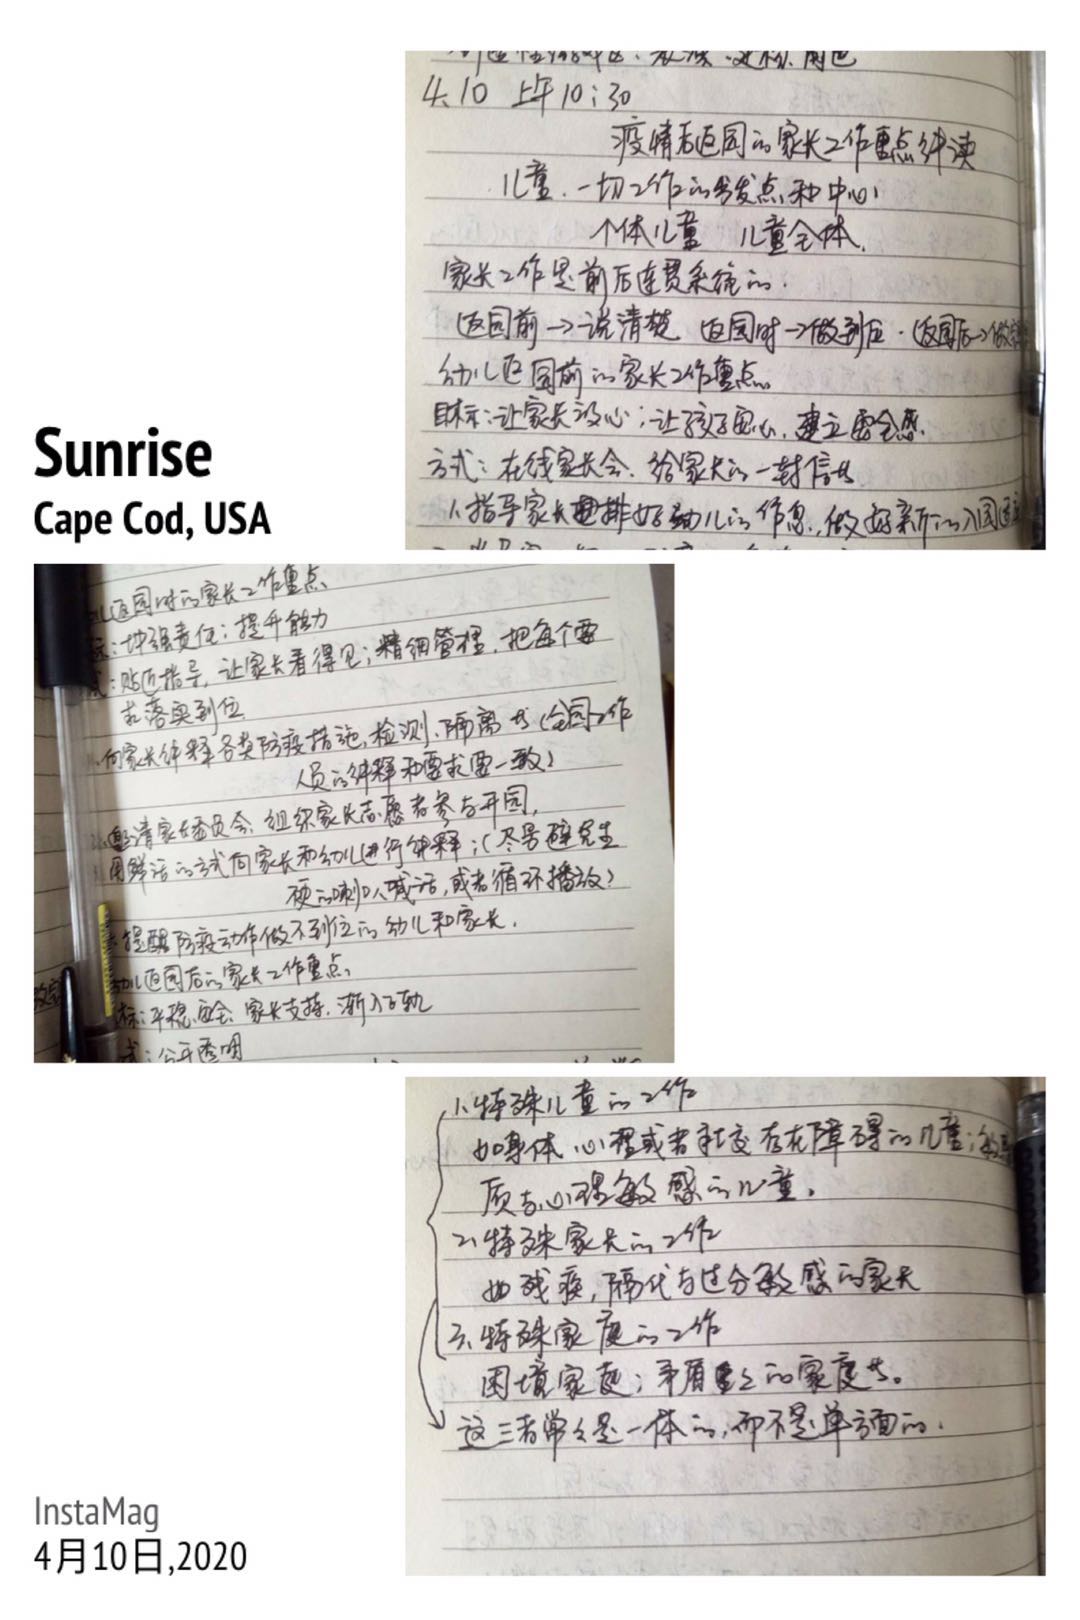 4.10 上午10:30
疫情后返园的家长工作重点解读
儿童.一切工作的出发点和中心
个体儿童 儿童全体.
家长工作是前后连贯系统的.
返园前→说清楚 返园时→做到位.返园后→做
幼儿返园前的家长工作重点.
目标:让家长放心;让孩子安心.建立安全感.
方式:在线家长会.给家长的一封信等
1.指导家长安排好幼儿的作息.,做好新的入园
Sunrise
Cape Cod, USA
儿返园时的家长工作重点.
标:增强责任;提升能力
式:贴近指导,让家长看得见;精细管理.把每个要
求落实到位.
1.向家长解释各类防疫措施,检测、隔离等(全园工作
人员的解释和要求要一致)
2.邀请家长委员会、组织家长志愿者参与开园,
用鲜活的方式向家长和幼儿进行解释;(尽量避免生
硬的喇叭喊话,或者循环播放)
提醒防疫动作做不到位的幼儿和家长.
幼儿返园后的家长工作重点.
标:平稳安全.家长支持.渐入正轨
式:公开透明
1.特殊儿童的工作
如身体.心理或者社交存在障碍的儿童;
质与心理敏感的儿童.
2.特殊家长的工作
如残疾,隔代与过分敏感的家长
3.特殊家庭的工作
困境家庭;矛盾重重的家庭等。
这三者常常是一体的,而不是单方面的.
InstaMag
4月10日,2020